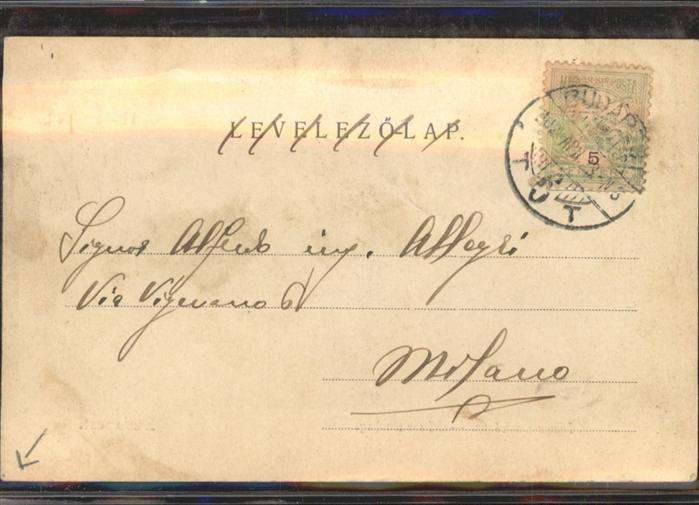 LEVELEZŐLAP.
BUDAPEST
5
Signor Alfredo ing. Allegri
Via Vigevano 6
Milano